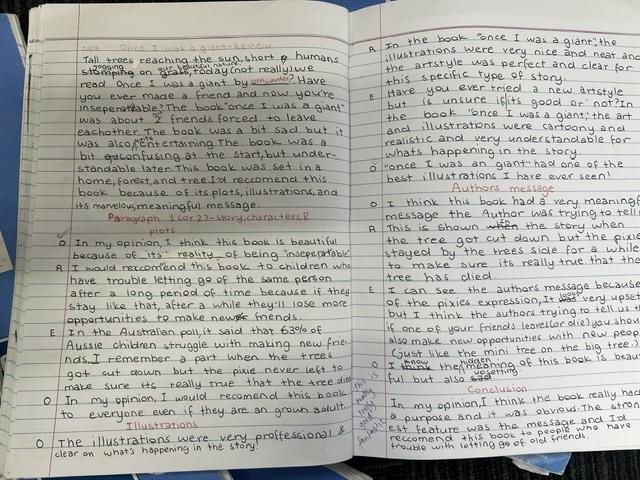 Once I was a giant-Review
Tall trees reaching the sun, short humans
jogging our beautiful nature,
stomping on grass, today (not really) we
read Once I was a giant by
you ever made a friend and now you're
inseperatable? The book "once I was a giant"
was about 2 friends forced to leave
eachother. The book was a bit sad but it
was also quite entertaining. The book was a
bit confusing at the start, but under-
standable later. This book was set in a
home, forest, and tree. I'd reccomend this
book because of its plots, illustrations, and
its marvelous, meaningful message.
Paragraph 1 (or 2)- story, characters, &
plots
O In my opinion, I think this book is beautiful
because of "its" reality of being "inseperatable"
R I would reccomend this book to children who
have trouble letting go of the same person
after a long period of time because if they
stay like that, after a while they'll lose more
opportunities to make new friends.
E In the Australian poll, it said that 63% of
Aussie children struggle with making new frie-
nds. I remember a part when the trees
got cut down but the pixie never left to
make sure its really true that the tree died
O In my opinion, I would recomend this book
to everyone even if they are an grown adult.
Illustrations
O The illustrations were very proffessional &
clear on what's happening in the story!
R In the book "once I was a giant", the
illustrations were very nice and neat and
the artstyle was perfect and clear for
this specific type of story.
E Have you ever tried a new artstyle
but is unsure if its good or not? In
the book "once I was a giant", the art
and illustrations were cartoony and
realistic and very understandable for
whats happening in the story
O "once I was an giant" had one of the
best illustrations I have ever seen!
Authors message
O I think this book had a very meaningf
message the Author was trying to tell
R This is shown when the story when
the tree got cut down but the pixie
stayed by the trees side for a while
to make sure its really true that the
tree has died
E I can see the authors message because
of the pixies expression, It looked very upset
but I think the authors trying to tell us th
if one of your friends leaves (or die) you shou
also make new opportunities with new peop
(just like the mini tree on the big tree.)
O I know the hidden meaning of this book is beau
ful but also upsetting.
Conclusion
In my opinion, I think the book really had
a purpose and it was obvious. The stron
est feature was the message and I'd
reccomend this book to people who have
trouble with letting go of old friends.